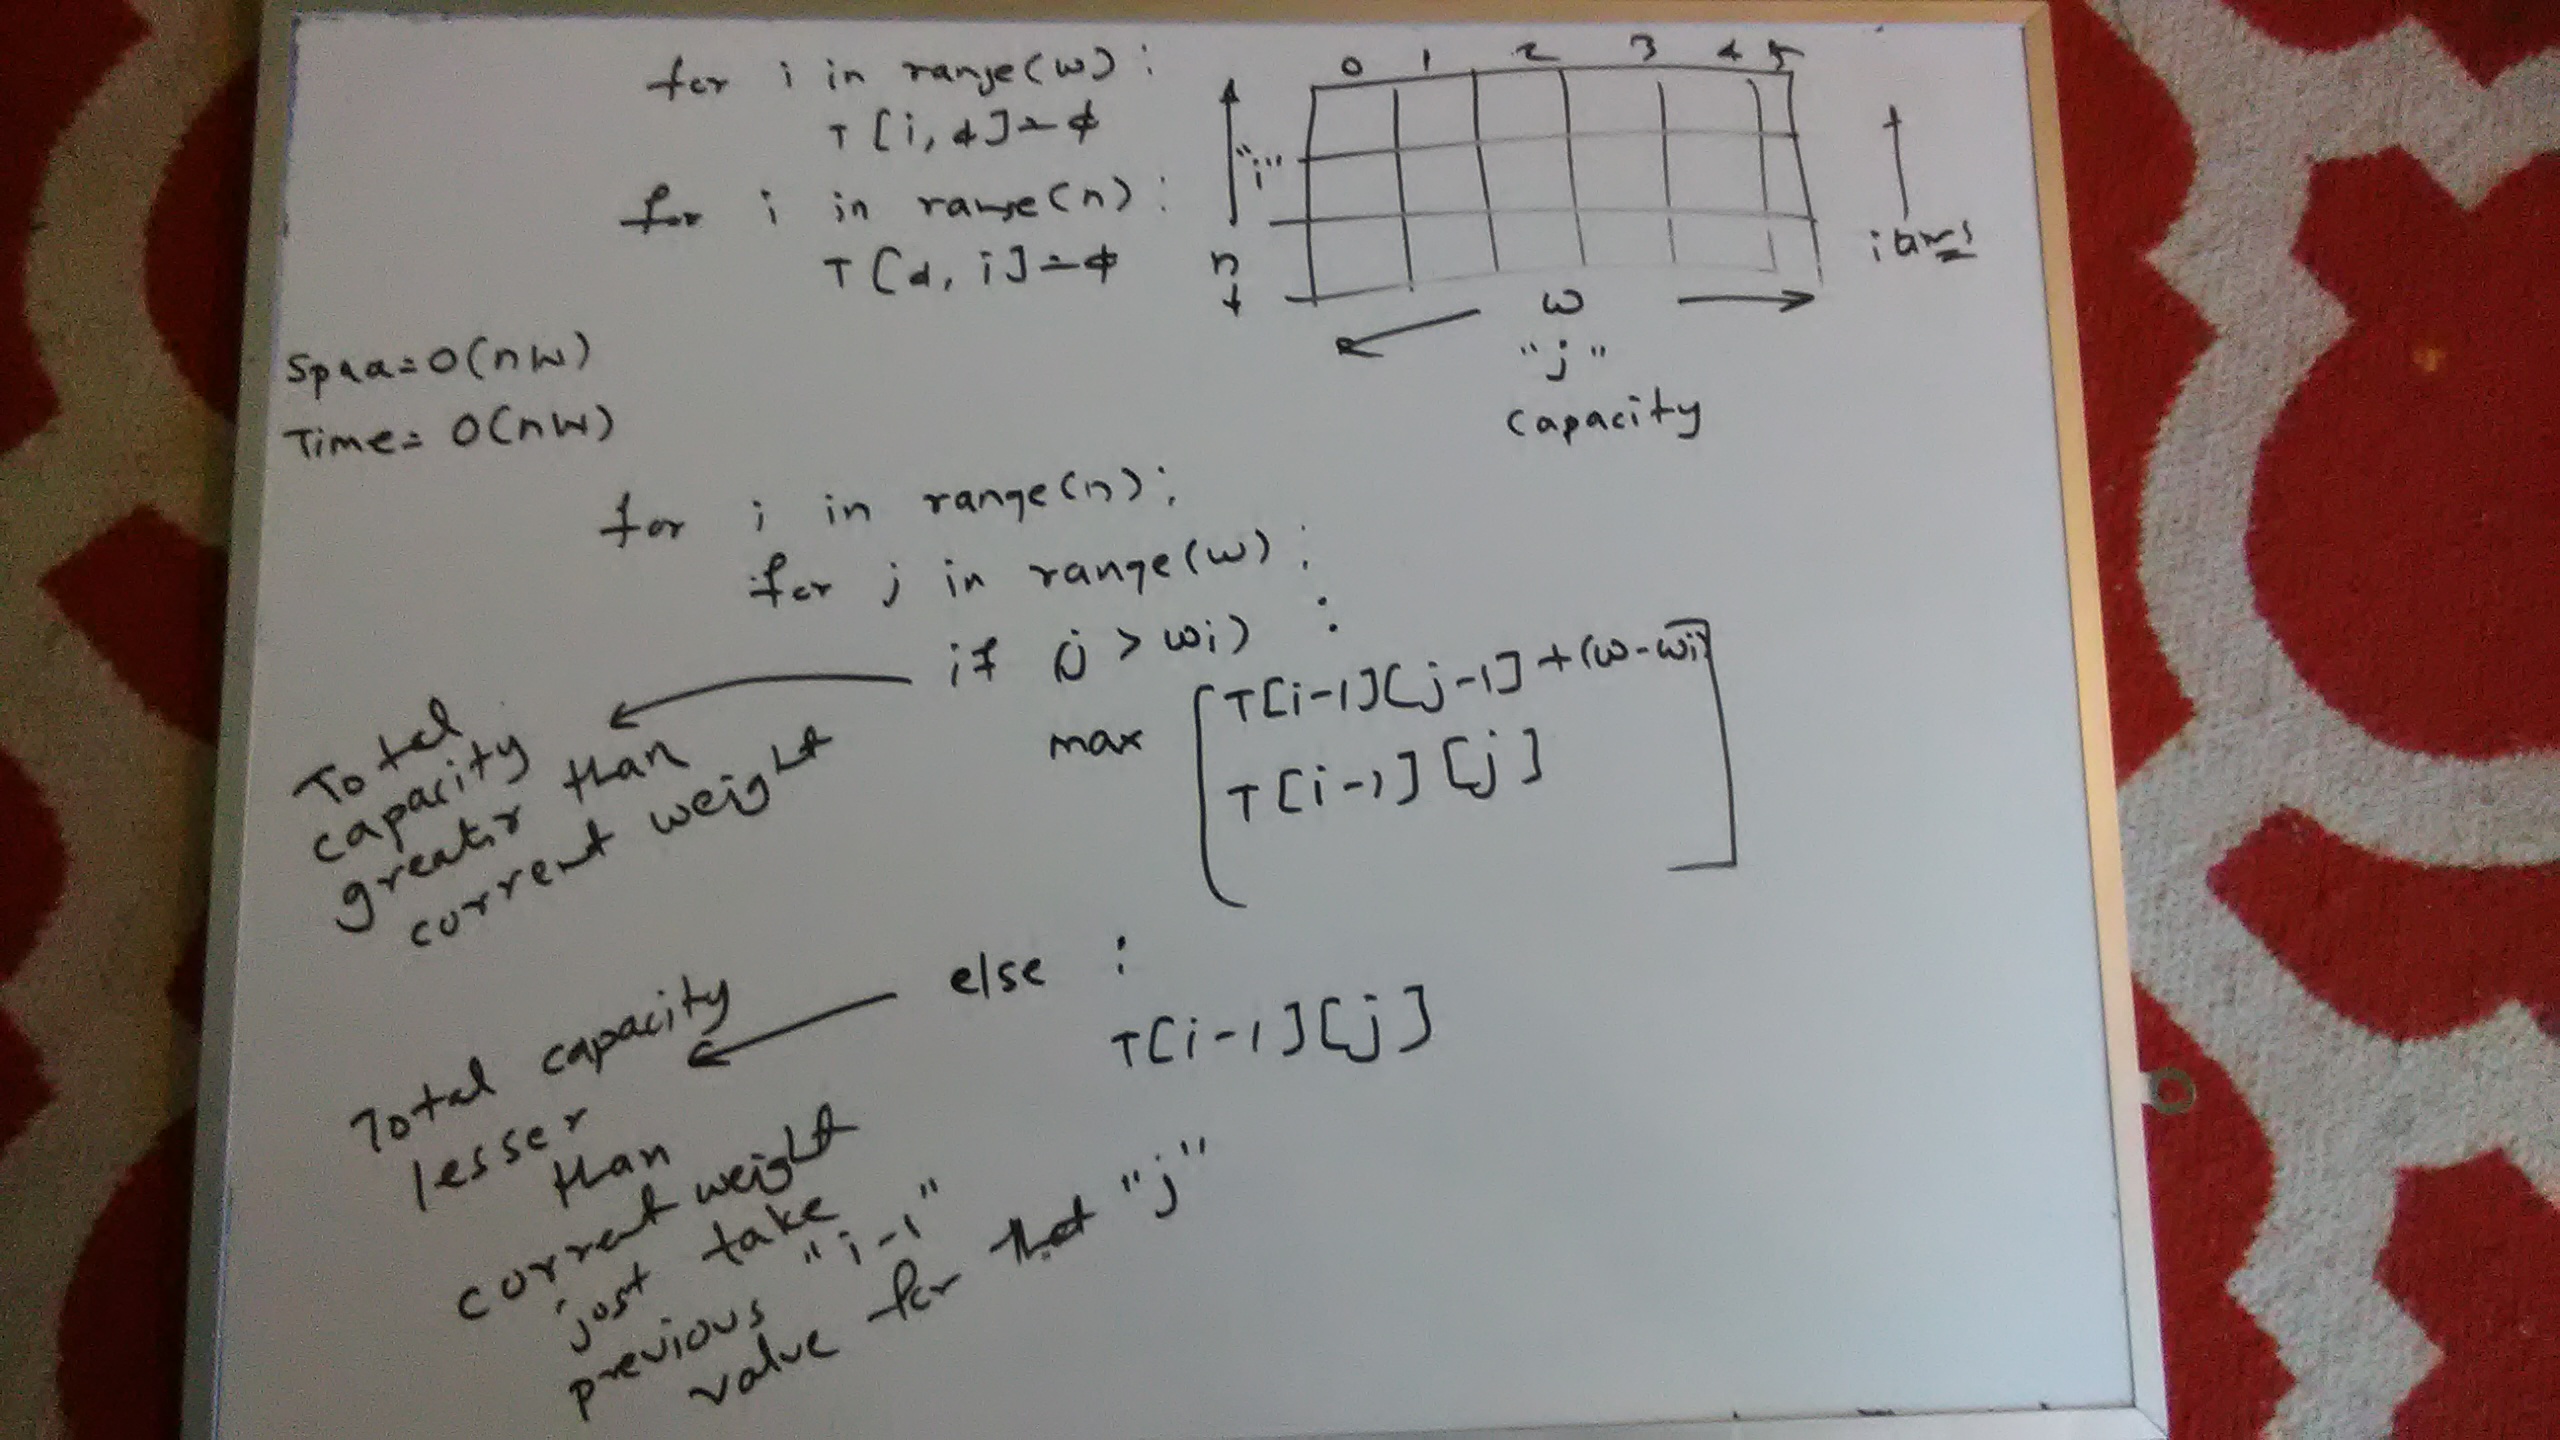 for i in range(w):
T[i, φ]=φ
for i in range(n):
T[φ, i]=φ
0 1 2 3 4 5
"i"
n
items
w
"j"
capacity
Space=O(nW)
Time=O(nW)
for i in range(n):
for j in range(w):
if (j > wi) :
max [T[i-1][j-1]+(w-wi)
T[i-1][j]]
Total
capacity
greater than
current weight
else :
T[i-1][j]
Total capacity
lesser
than
current weight
just take
previous "i-1"
value for that "j"